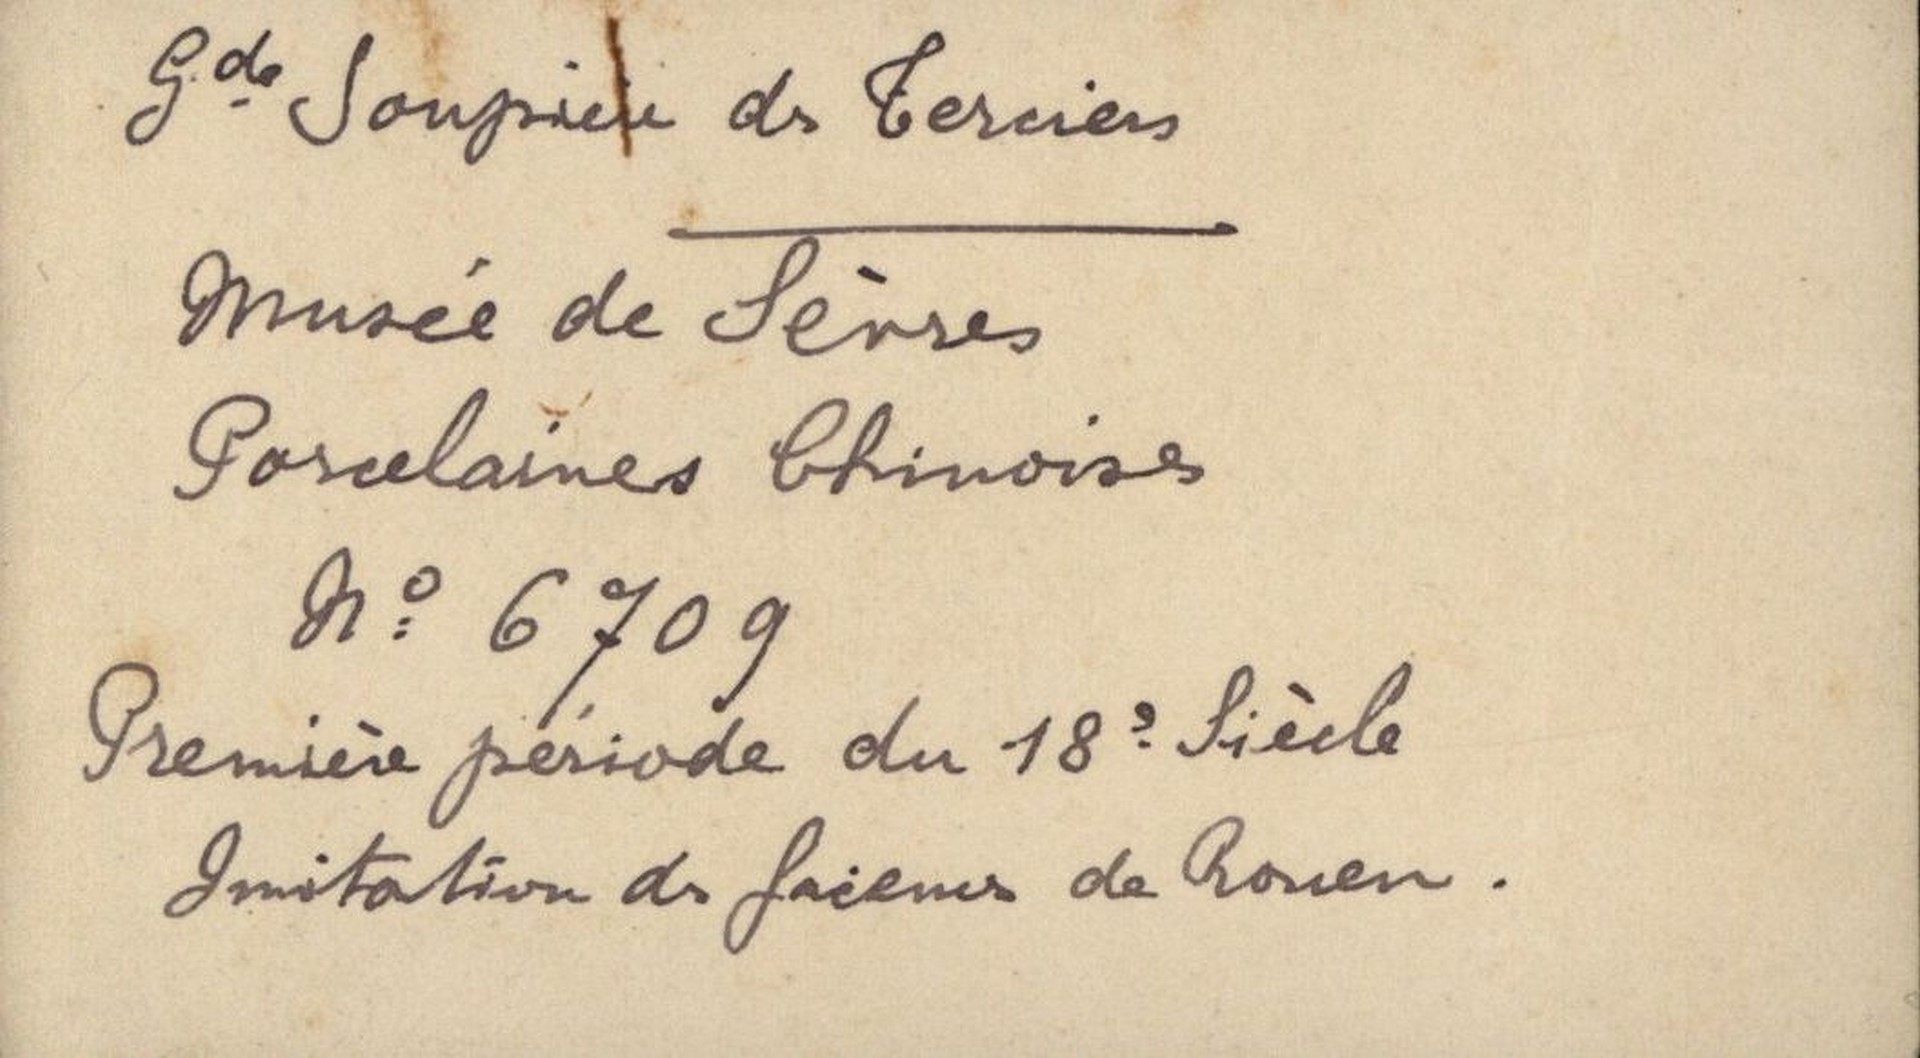 Gde Soupière de Terciers
Musée de Sèvres
Porcelaines Chinoises
No 6709
Première période du 18e Siècle
Imitation de faïences de Rouen.